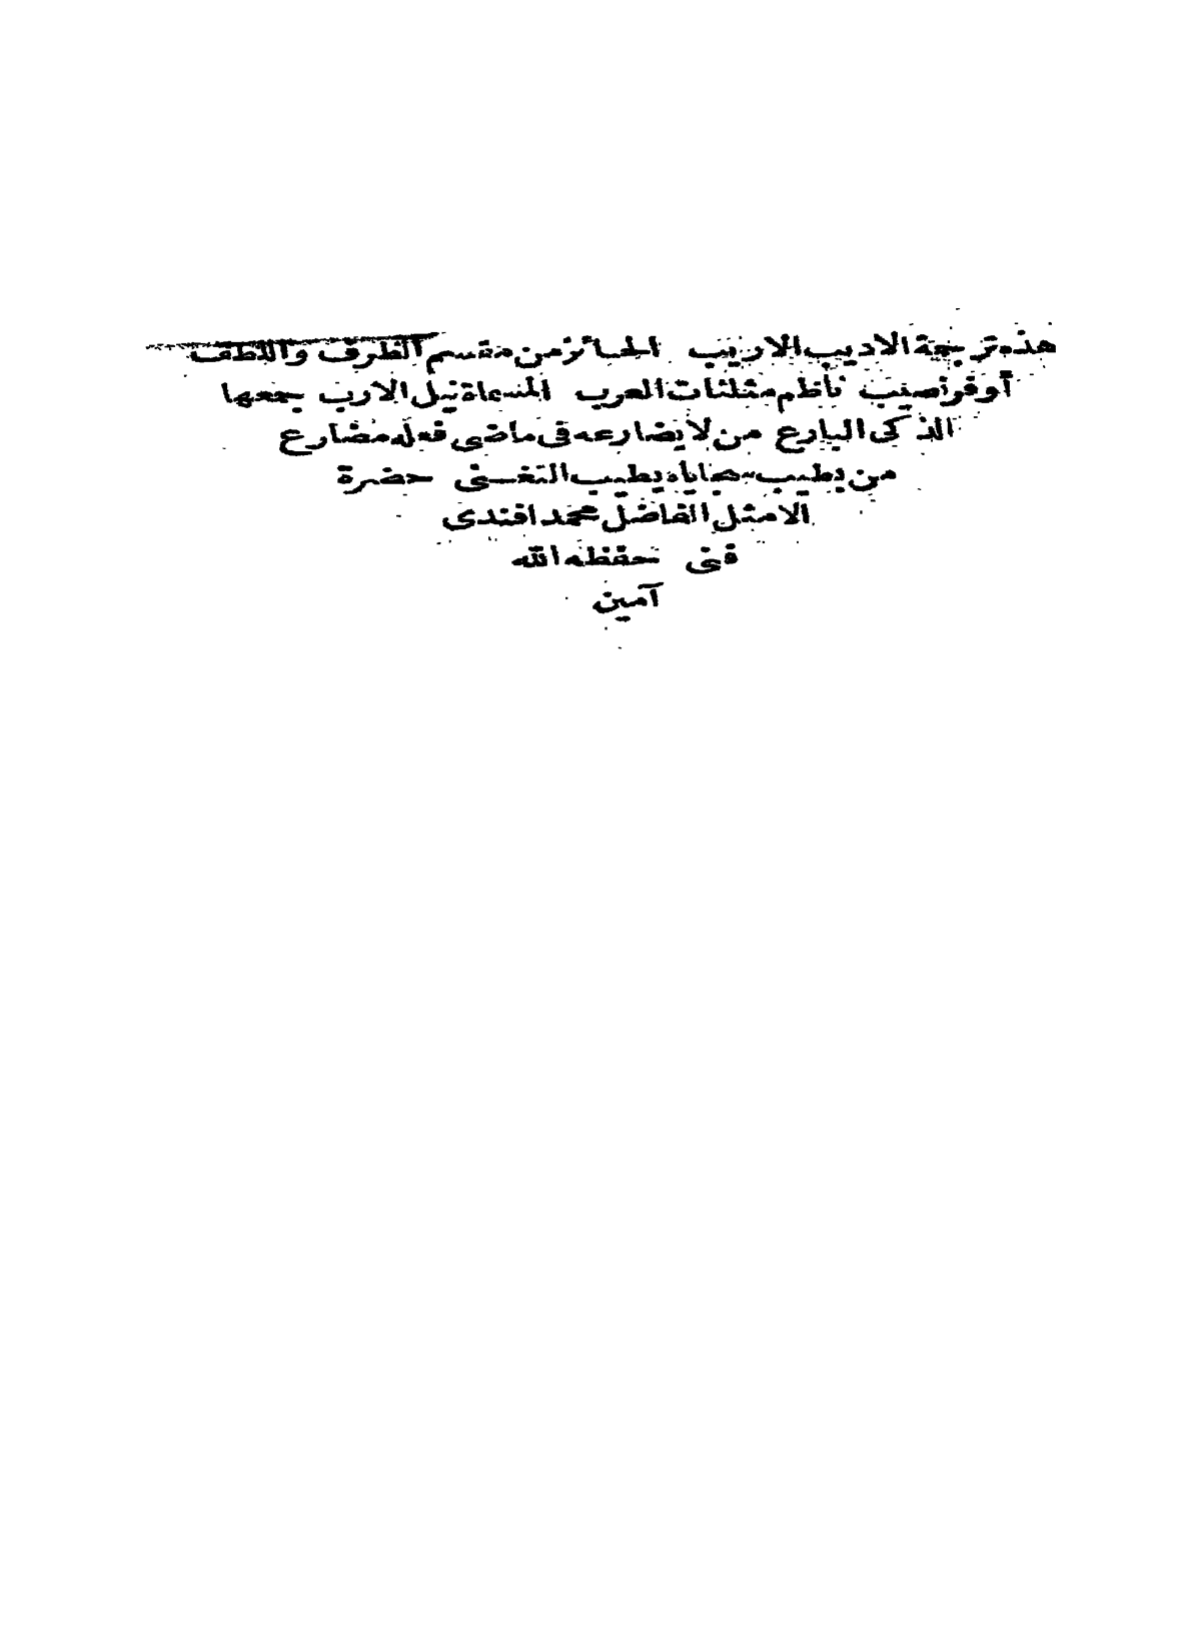 هذه ترجمة الاديب الاريب الحائز من مقسم الظرف واللطف
أوفر نصيب ناظم مثلثات العرب المسماة نيل الارب جمعها
الذكى البارع من لا يضارعه فى ماضى فعله مضارع
من بطيب سجاياه يطيب التغنى حضرة
الامثل الفاضل محمد افندى
فنى حفظه الله
آمين